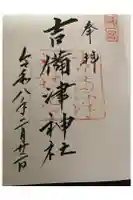 奉拝
吉備津神社
令和八年二月廿一日